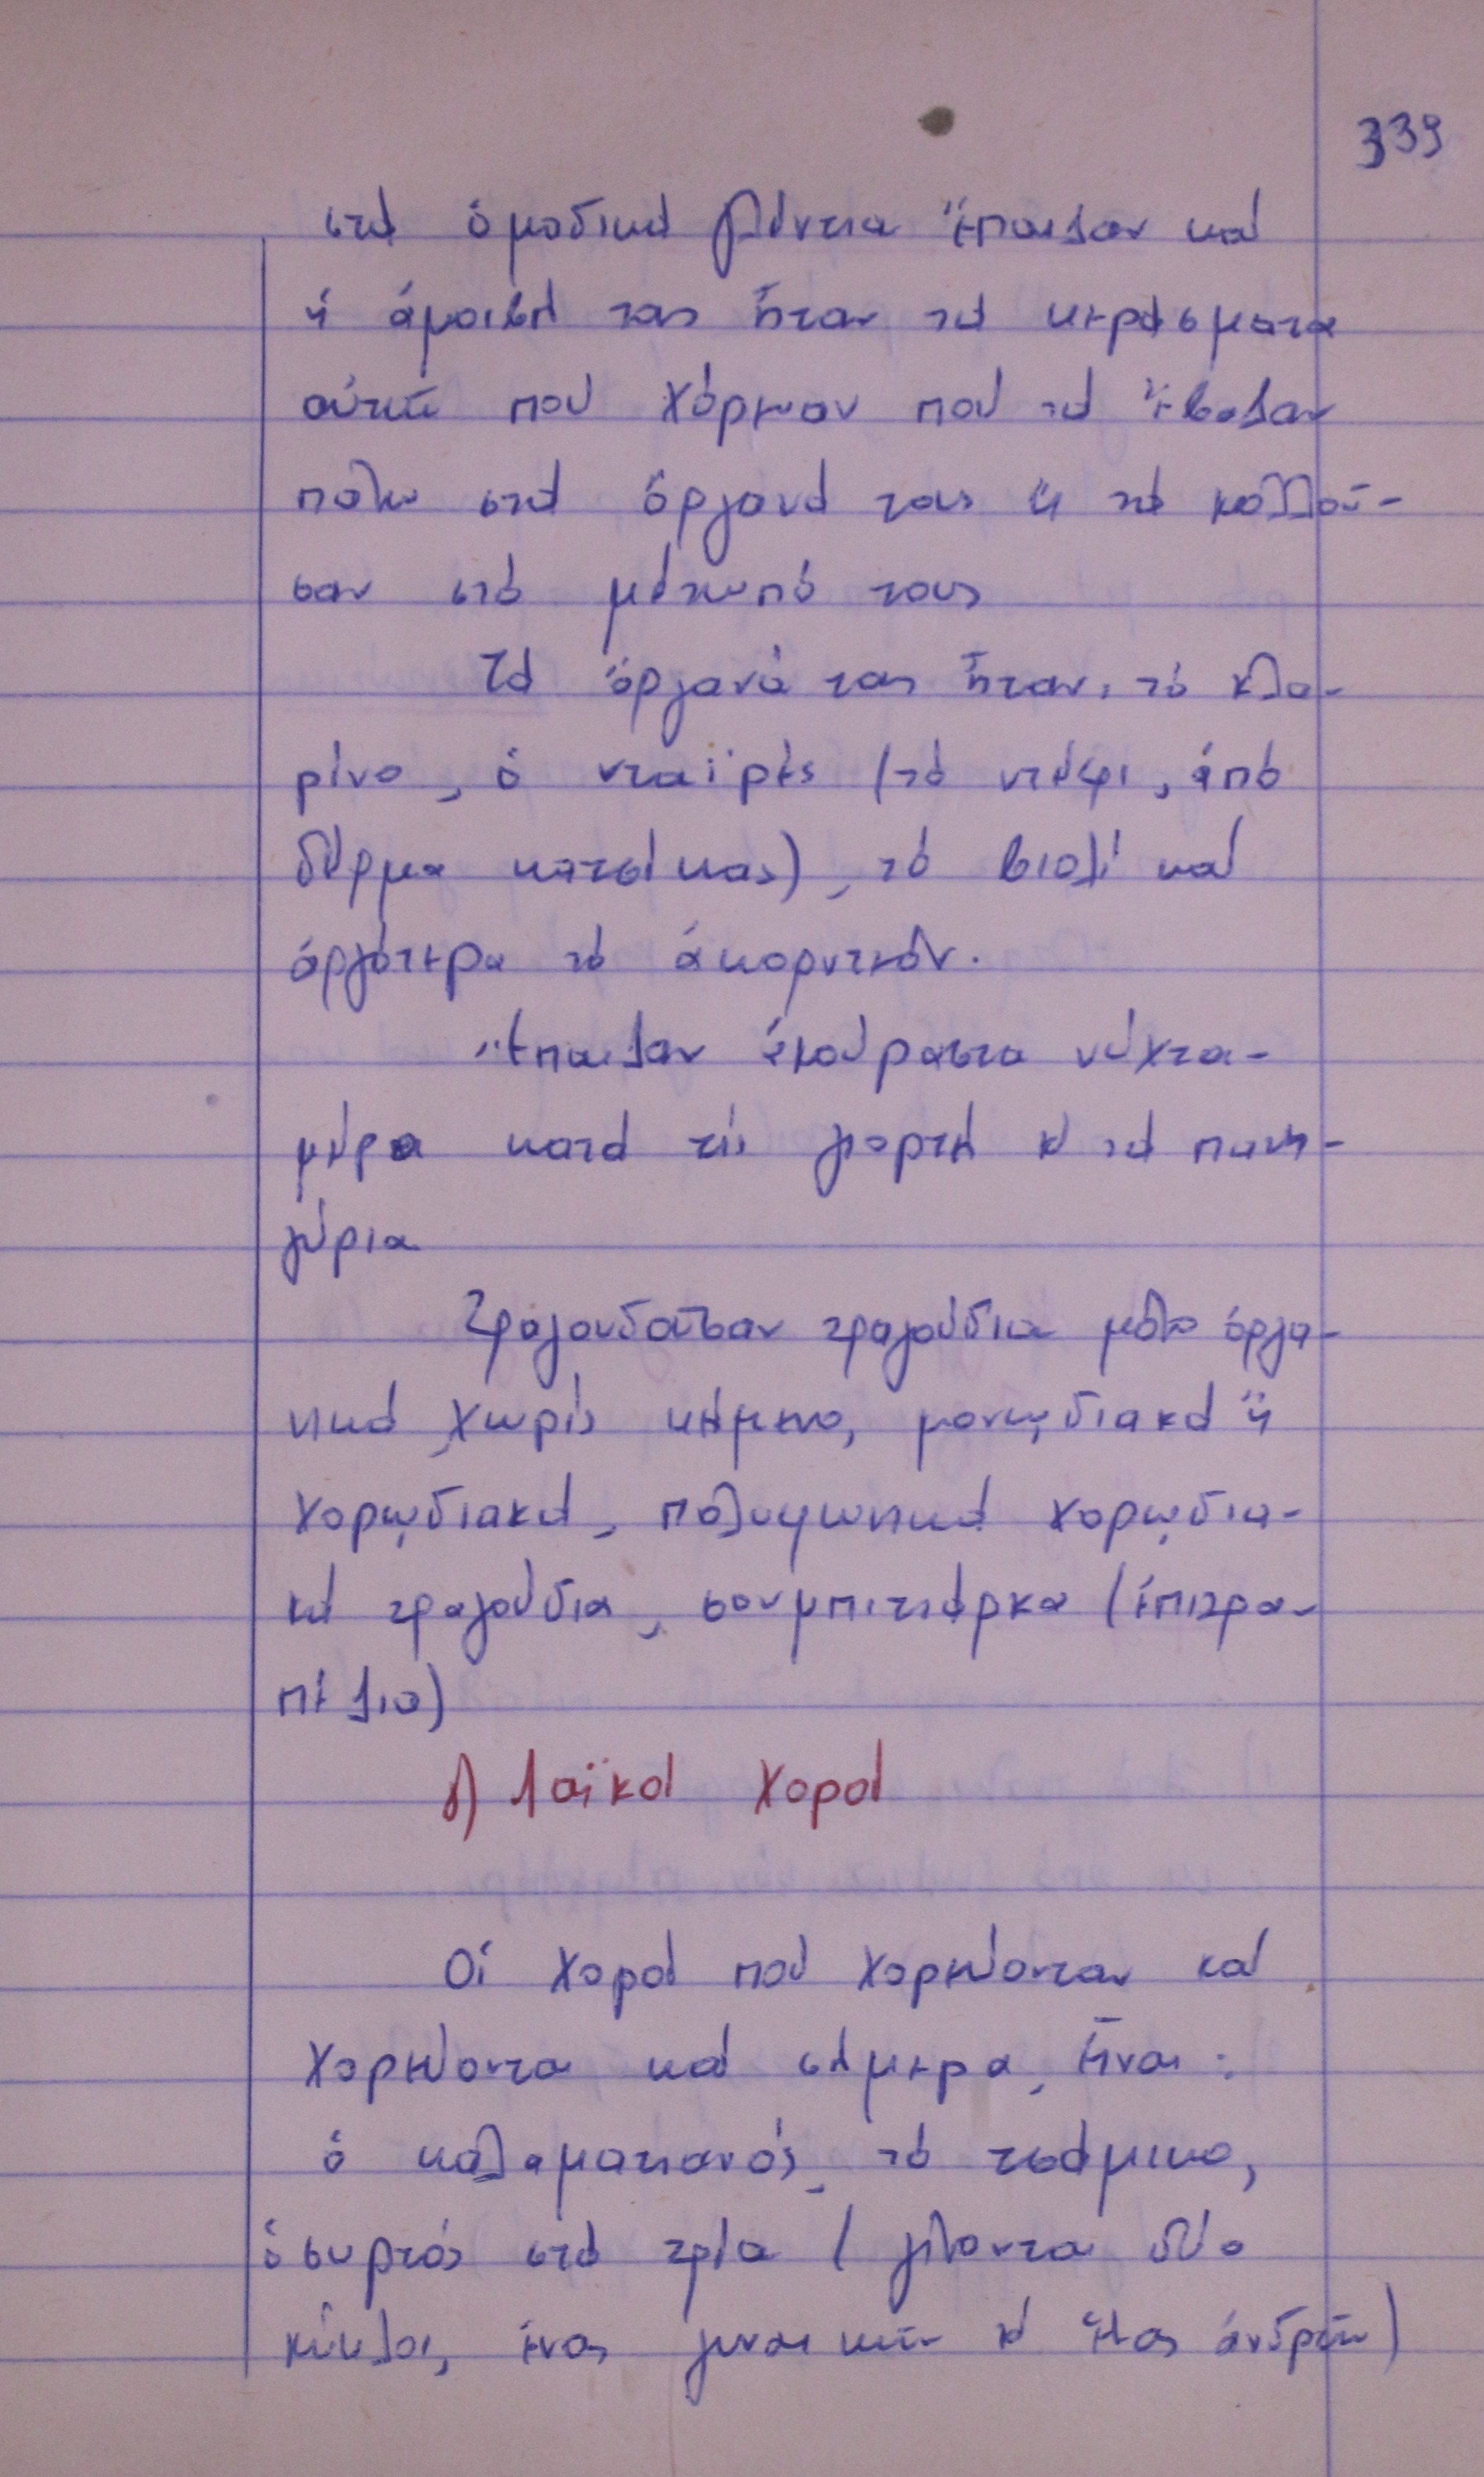 339
στά ὁμαδικά γλέντια ἔπαιζαν καί
ἡ ἀμοιβή τους ἦταν τά κεράσματα
αὐτῶν πού χόρευαν πού τά ἔβαζαν
πάνω στά ὄργανά τους ἤ τά κολλού-
σαν στό μέτωπό τους
Τά ὄργανά τους ἦταν, τό κλα-
ρίνο, ὁ νταϊρές (τό ντέφι, ἀπό
δέρμα κατσίκας), τό βιολί καί
ἀργότερα τό ἀκορντεόν.
Ἔπαιζαν ἀκούραστα νύχτα-
μέρα κατά τίς γιορτές κ' τά πανη-
γύρια
Τραγουδοῦσαν τραγούδια μέ ὄργα-
νικά χωρίς κείμενο, μονωδιακά ἤ
χορωδιακά, πολυφωνικά χορωδια-
κά τραγούδια, σουμπετιάρκα (ἐπιτρα-
πέζια)
γ) Λαϊκοί χοροί
Οἱ χοροί πού χορεύονταν καί
χορεύονται καί σήμερα, εἶναι:
ὁ καλαματιανός, τό τσάμικο,
ὁ συρτός στά τρία (γίνονται δύο
κύκλοι, ἕνας γυναικῶν κ' ἕνας ἀνδρῶν)